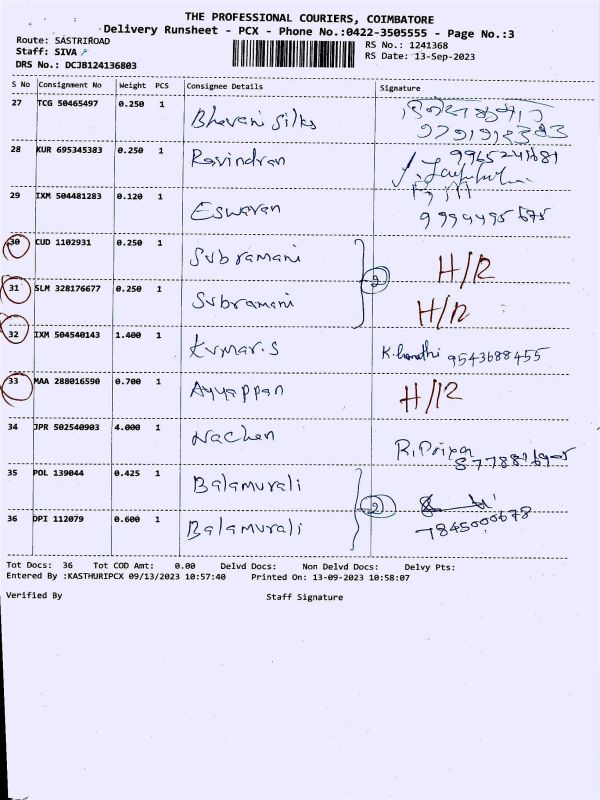 THE PROFESSIONAL COURIERS, COIMBATORE
Delivery Runsheet - PCX - Phone No.:0422-3505555 - Page No.:3
Route: SASTRIROAD
RS No.: 1241368
Staff: SIVA
RS Date: 13-Sep-2023
DRS No.: DCJB124136803
S No Consignment No Weight PCS Consignee Details Signature
27 TCG 50465497 0.250 1 Bhavani Silks
28 KUR 695345383 0.250 1 Ravindran
29 IXM 504481283 0.120 1 Eswaran
30 CUD 1102931 0.250 1 Subramani H/R
2
31 SLM 328176677 0.250 1 Subramani H/R
32 IXM 504540143 1.400 1 Kumar.S 9543688455
33 MAA 288016590 0.700 1 Ayyappan H/R
34 JPR 502540903 4.000 1 Nachen R. Priya
35 POL 139044 0.425 1 Balamurali
2
36 DPI 112079 0.600 1 Balamurali 7845000678
Tot Docs: 36 Tot COD Amt: 0.00 Delvd Docs: Non Delvd Docs: Delvy Pts:
Entered By :KASTHURIPCX 09/13/2023 10:57:40 Printed On: 13-09-2023 10:58:07
Verified By Staff Signature